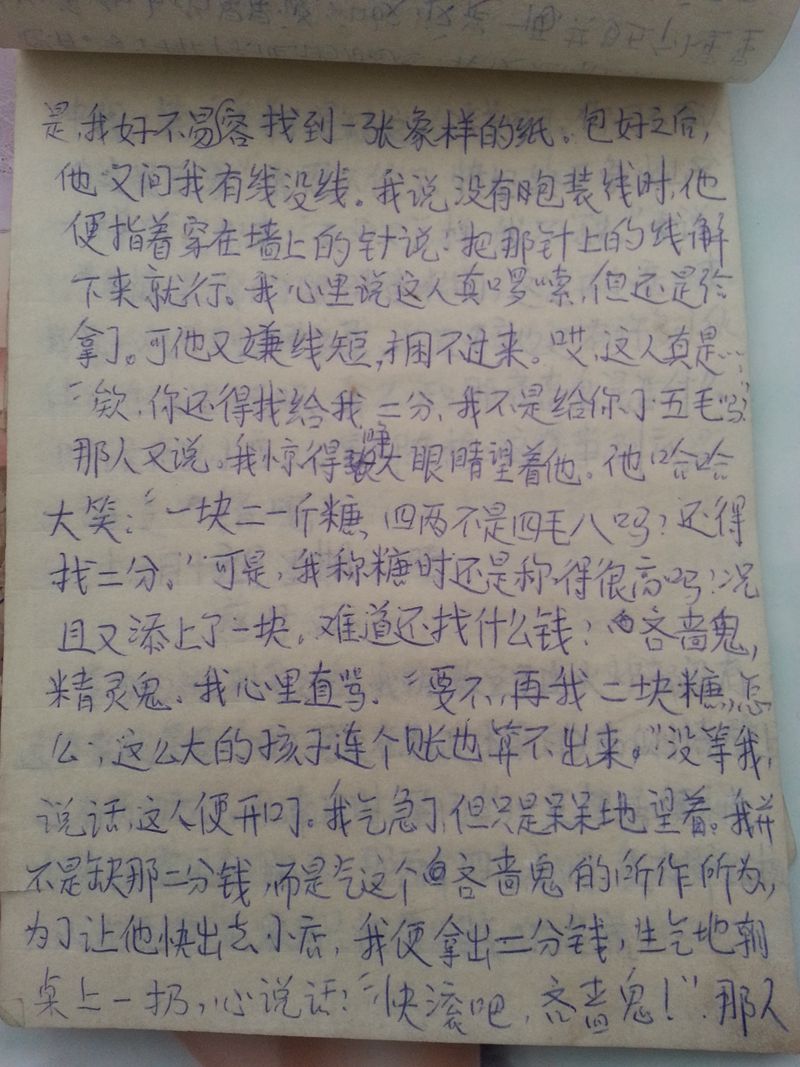 是,我好不易容找到一张象样的纸。包好之后,
他又问我有线没线。我说没有包装线时,他
便指着穿在墙上的针说:把那针上的线解
下来就行。我心里说这人真啰嗦,但还是给
拿了。可他又嫌线短,捆不过来。哎,这人真是…
"欸,你还得找给我二分,我不是给你了五毛吗?"
那人又说。我惊得睁大眼睛望着他。他哈哈
大笑:"一块二一斤糖,四两不是四毛八吗?还得
找二分。"可是,我称糖时还是称得很高吗!况
且又添上了一块。难道还找什么钱?吝啬鬼,
精灵鬼。我心里直骂。"要不,再我二块糖,怎
么,这么大的孩子连个账也算不出来。"没等我,
说话,这人便开口了。我气急了,但只是呆呆地望着。我并
不是缺那二分钱,而是气这个吝啬鬼的所作所为,
为了让他快出去小店,我便拿出二分钱,生气地朝
桌上一扔,心说话:"快滚吧,吝啬鬼!"那人